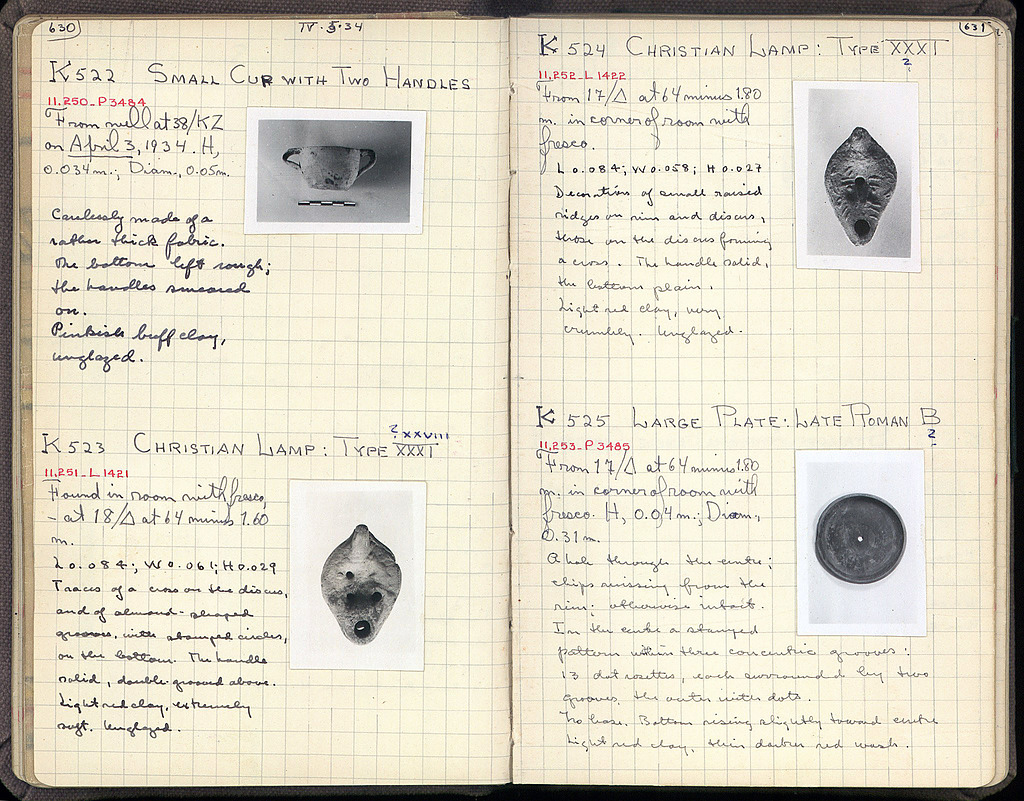 630
IV·5·34
K 522 SMALL CUP WITH TWO HANDLES
11,250_P3484
From well at 38/KZ
on April 3, 1934. H,
0.034m.; Diam., 0.05m.
Carelessly made of a
rather thick fabric.
The bottom left rough;
the handles smeared
on.
Pinkish buff clay,
unglazed.
K 523 CHRISTIAN LAMP: TYPE XXXI
? XXVIII
11,251_L1421
Found in room with fresco,
– at 18/Δ at 64 minus 1.60
m.
L 0.084; W 0.061; H 0.029
Traces of a cross on the discus,
and of almond-shaped
grooves, with stamped circles,
on the bottom. The handle
solid, double-grooved above.
Light red clay, extremely
soft. Unglazed.
631
K 524 CHRISTIAN LAMP: TYPE XXXI
?
11,252_L1422
From 17/Δ at 64 minus 1.80
m. in corner of room with
fresco.
L 0.084; W 0.058; H 0.027
Decoration of small raised
ridges on rim and discus,
those on the discus forming
a cross. The handle solid,
the bottom plain.
Light red clay, very
crumbly. Unglazed.
K 525 LARGE PLATE: LATE ROMAN B
?
11,253_P3485
From 17/Δ at 64 minus 1.80
m. in corner of room with
fresco. H, 0.04 m.; Diam.,
0.31 m.
A hole through the centre;
chips missing from the
rim; otherwise intact.
In the centre a stamped
pattern within three concentric grooves:
13 dot rosettes, each surrounded by two
grooves, the outer with dots.
No base. Bottom rising slightly toward centre
Light red clay, thin darker red wash.